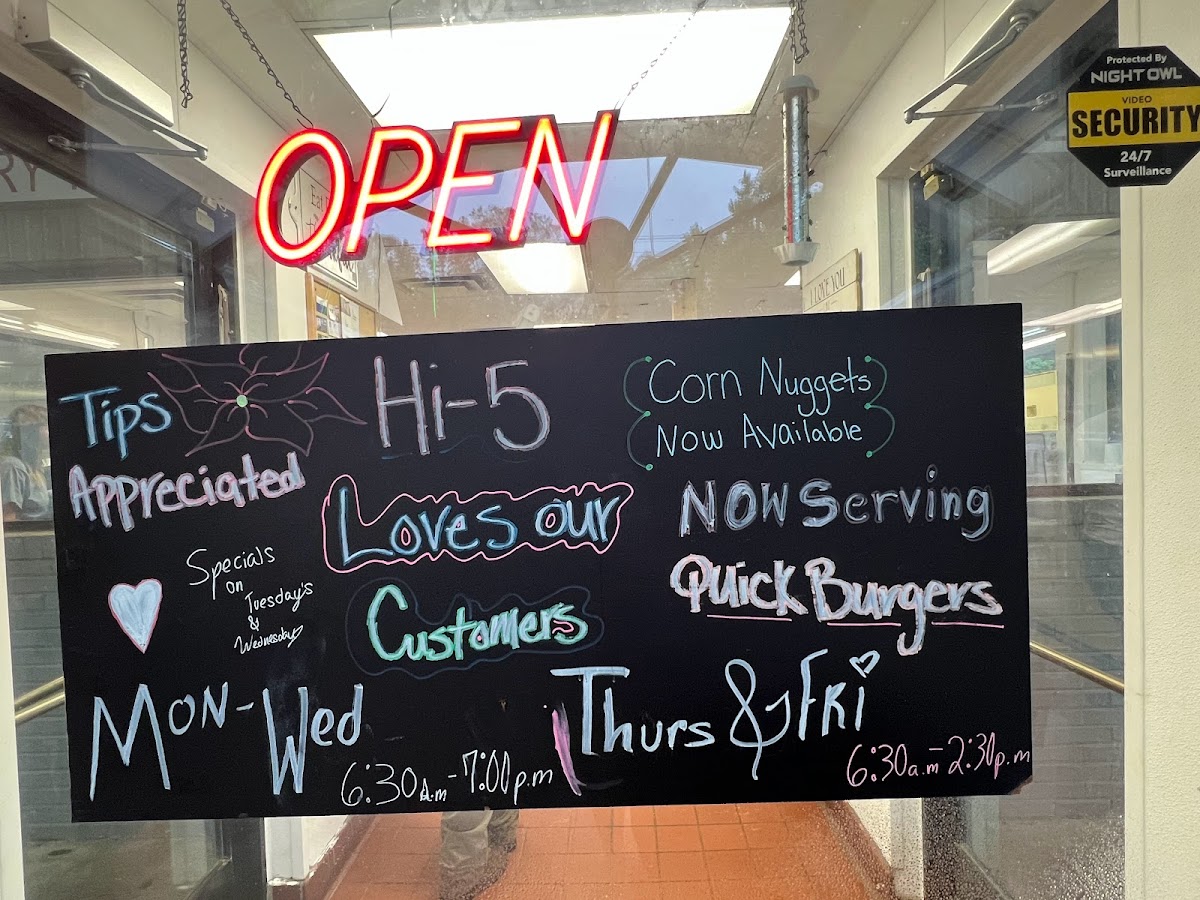 OPEN
Protected By
NIGHT OWL
VIDEO
SECURITY
24/7
Surveillance
I LOVE YOU
Tips
Appreciated
Hi-5
Loves our
Customers
Corn Nuggets
Now Available
NOW Serving
Quick Burgers
Specials
on
Tuesday's
&
Wednesday
Mon-Wed
6:30a.m-7:00p.m
Thurs & Fri
6:30a.m-2:30p.m